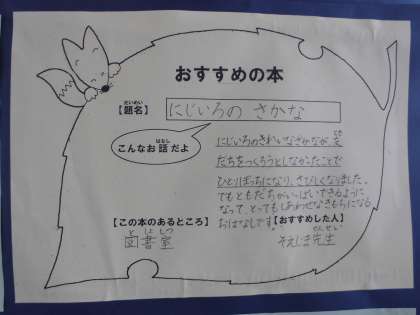 おすすめの本
だいめい
【題名】
にじいろの さかな
はなし
こんなお話だよ
にじいろのきれいなさかなが、とも
だちをつくろうとしなかったことで
ひとりぼっちになり、さびしくなりました。
でもともだちがいっぱいできるように
なって、とってもしあわせなきもちになる
おはなしです。
【この本のあるところ】
としょしつ
図書室
【おすすめした人】
せんせい
そえじま先生